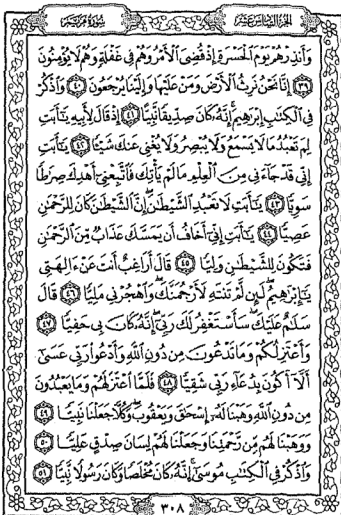 الجزء السادس عشر سورة مريم
وَأَنذِرْهُمْ يَوْمَ ٱلْحَسْرَةِ إِذْ قُضِىَ ٱلْأَمْرُ وَهُمْ فِى غَفْلَةٍ وَهُمْ لَا يُؤْمِنُونَ
٣٩ إِنَّا نَحْنُ نَرِثُ ٱلْأَرْضَ وَمَنْ عَلَيْهَا وَإِلَيْنَا يُرْجَعُونَ ٤٠ وَٱذْكُرْ
فِى ٱلْكِتَـٰبِ إِبْرَٰهِيمَ ۚ إِنَّهُۥ كَانَ صِدِّيقًا نَّبِيًّا ٤١ إِذْ قَالَ لِأَبِيهِ يَـٰٓأَبَتِ
لِمَ تَعْبُدُ مَا لَا يَسْمَعُ وَلَا يُبْصِرُ وَلَا يُغْنِى عَنكَ شَيْـًٔا ٤٢ يَـٰٓأَبَتِ
إِنِّى قَدْ جَآءَنِى مِنَ ٱلْعِلْمِ مَا لَمْ يَأْتِكَ فَٱتَّبِعْنِىٓ أَهْدِكَ صِرَٰطًا
سَوِيًّا ٤٣ يَـٰٓأَبَتِ لَا تَعْبُدِ ٱلشَّيْطَـٰنَ ۖ إِنَّ ٱلشَّيْطَـٰنَ كَانَ لِلرَّحْمَـٰنِ
عَصِيًّا ٤٤ يَـٰٓأَبَتِ إِنِّىٓ أَخَافُ أَن يَمَسَّكَ عَذَابٌ مِّنَ ٱلرَّحْمَـٰنِ
فَتَكُونَ لِلشَّيْطَـٰنِ وَلِيًّا ٤٥ قَالَ أَرَاغِبٌ أَنتَ عَنْ ءَالِهَتِى
يَـٰٓإِبْرَٰهِيمُ ۖ لَئِن لَّمْ تَنتَهِ لَأَرْجُمَنَّكَ ۖ وَٱهْجُرْنِى مَلِيًّا ٤٦ قَالَ
سَلَـٰمٌ عَلَيْكَ ۖ سَأَسْتَغْفِرُ لَكَ رَبِّىٓ ۖ إِنَّهُۥ كَانَ بِى حَفِيًّا ٤٧
وَأَعْتَزِلُكُمْ وَمَا تَدْعُونَ مِن دُونِ ٱللَّهِ وَأَدْعُوا۟ رَبِّى عَسَىٰٓ
أَلَّآ أَكُونَ بِدُعَآءِ رَبِّى شَقِيًّا ٤٨ فَلَمَّا ٱعْتَزَلَهُمْ وَمَا يَعْبُدُونَ
مِن دُونِ ٱللَّهِ وَهَبْنَا لَهُۥٓ إِسْحَـٰقَ وَيَعْقُوبَ ۖ وَكُلًّا جَعَلْنَا نَبِيًّا ٤٩
وَوَهَبْنَا لَهُم مِّن رَّحْمَتِنَا وَجَعَلْنَا لَهُمْ لِسَانَ صِدْقٍ عَلِيًّا ٥٠
وَٱذْكُرْ فِى ٱلْكِتَـٰبِ مُوسَىٰٓ ۚ إِنَّهُۥ كَانَ مُخْلَصًا وَكَانَ رَسُولًا نَّبِيًّا ٥١
٣٠٨